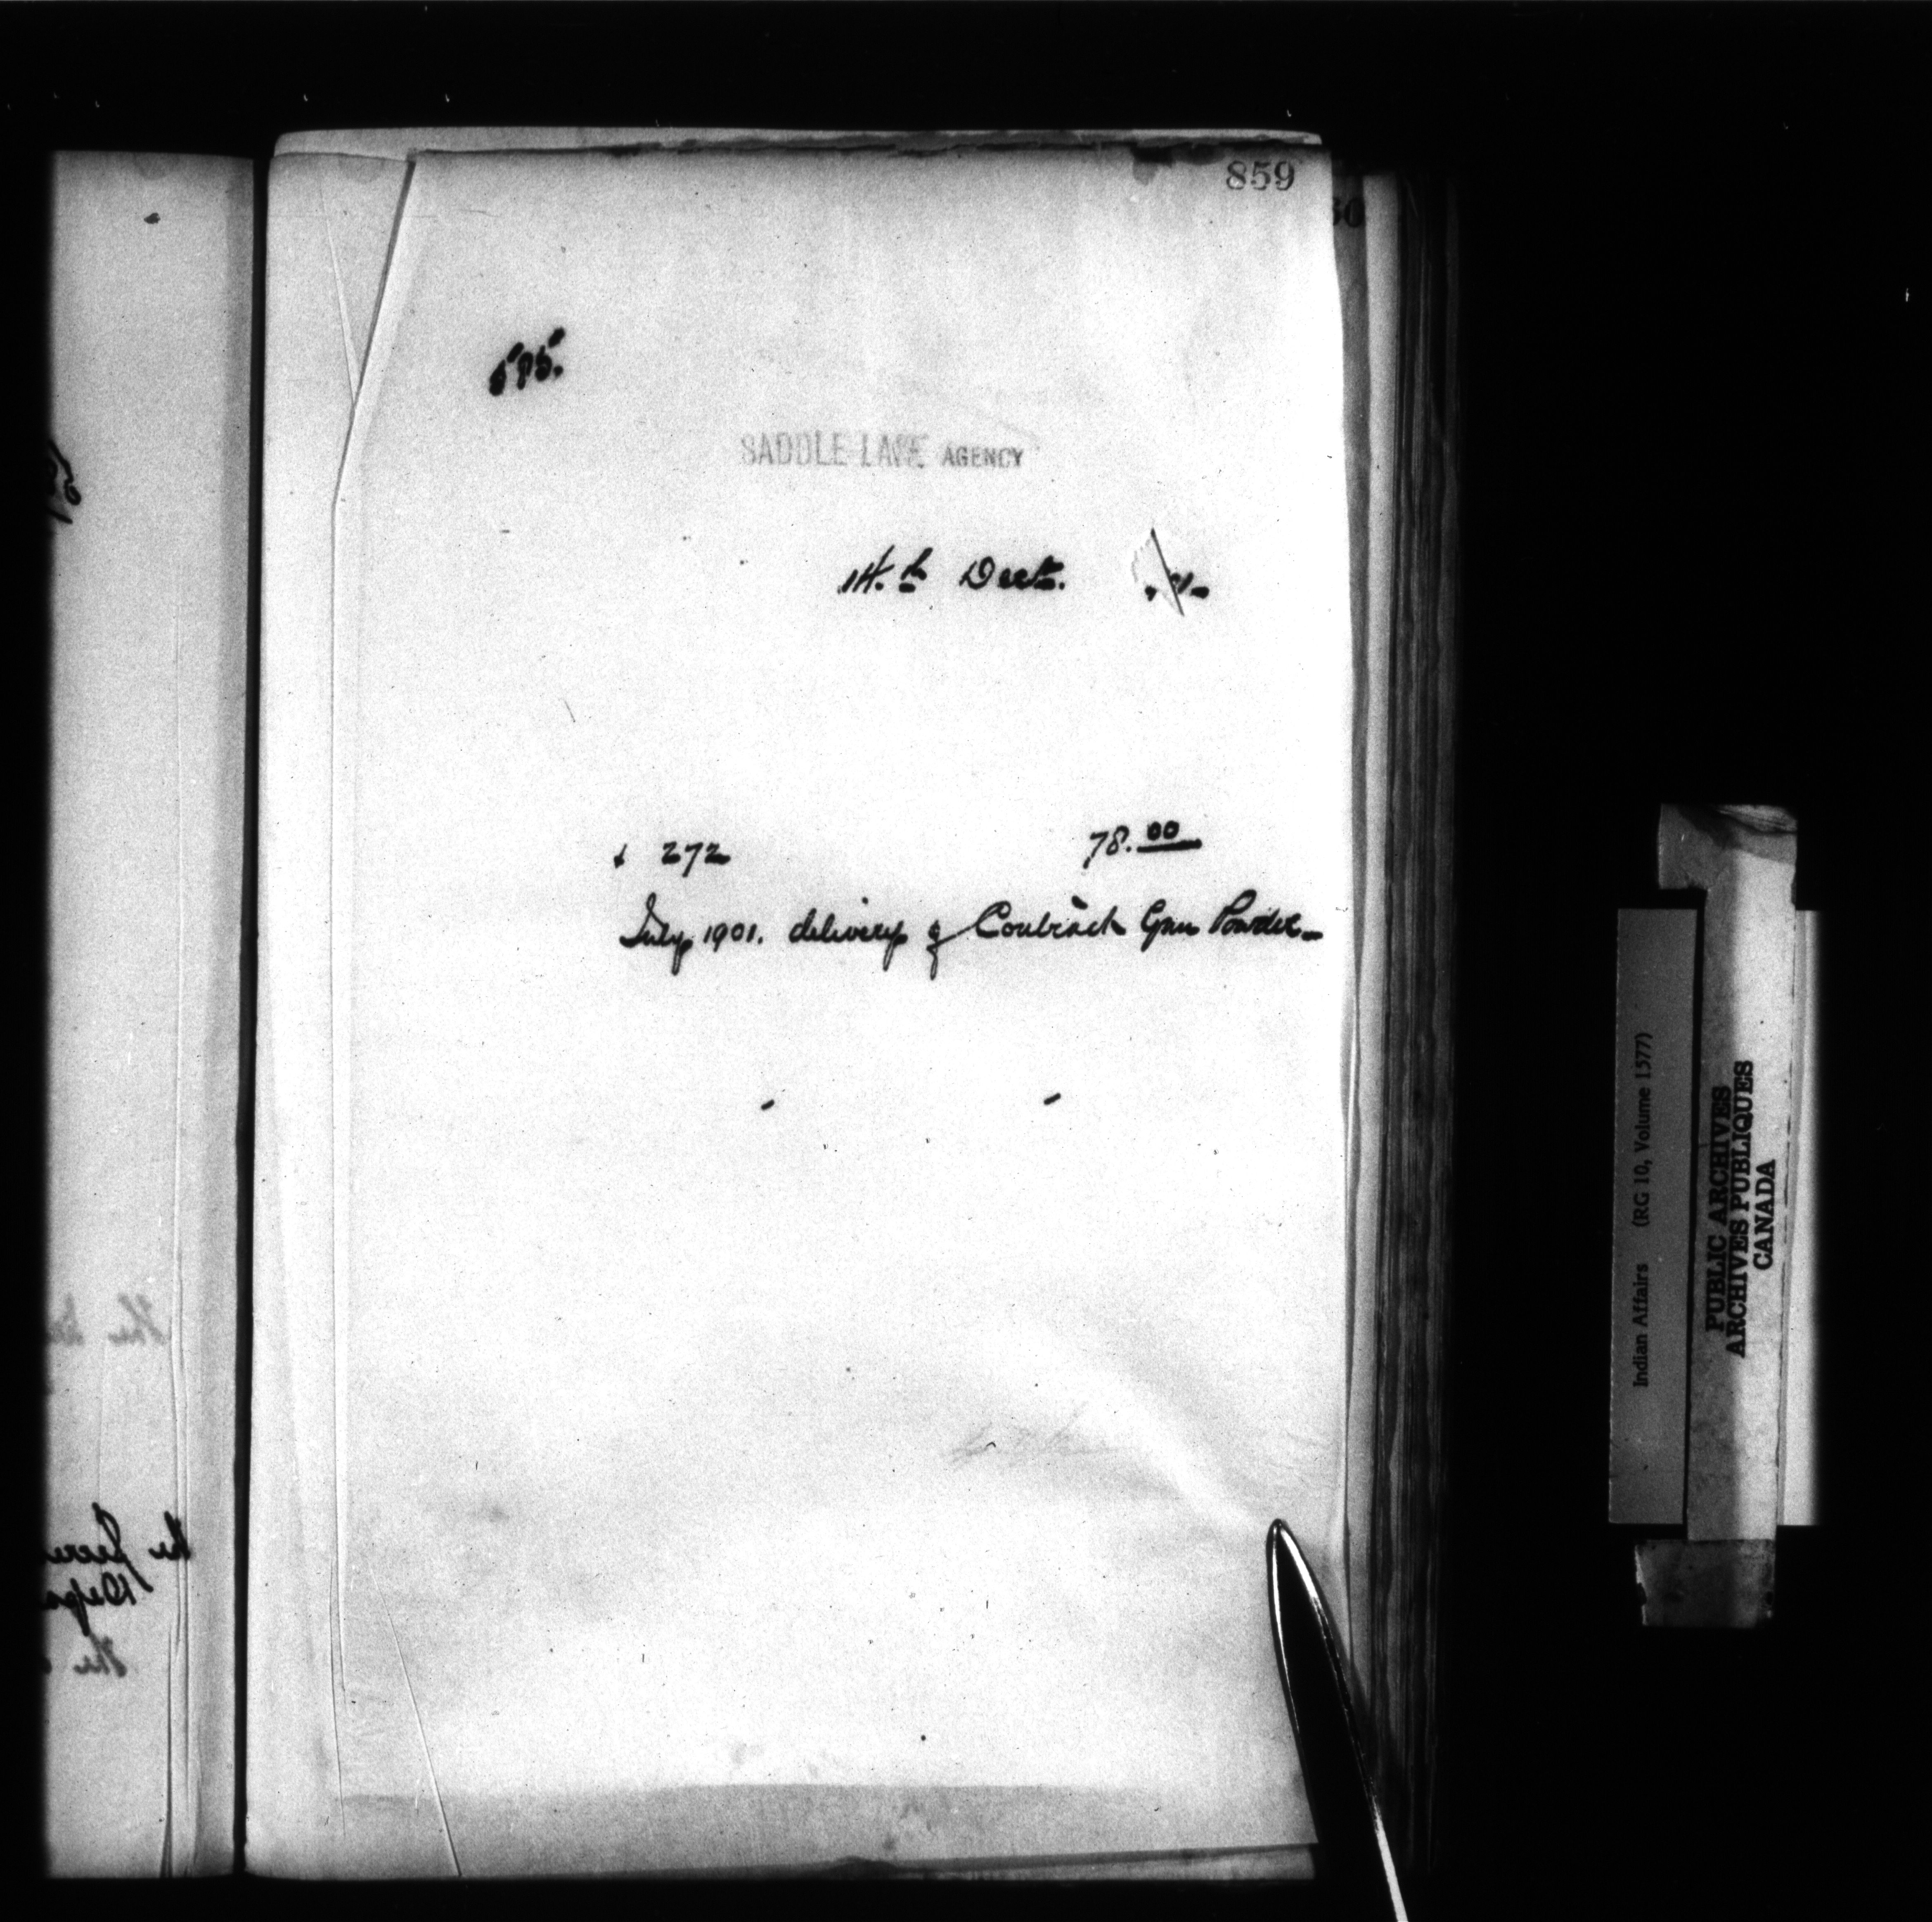 859
595.
SADDLE LAKE AGENCY
14.th Decr. 1-
272 78.00
July 1901. delivery of Contract Gun Powder-
Indian Affairs (RG 10, Volume 1577)
PUBLIC ARCHIVES
ARCHIVES PUBLIQUES
CANADA